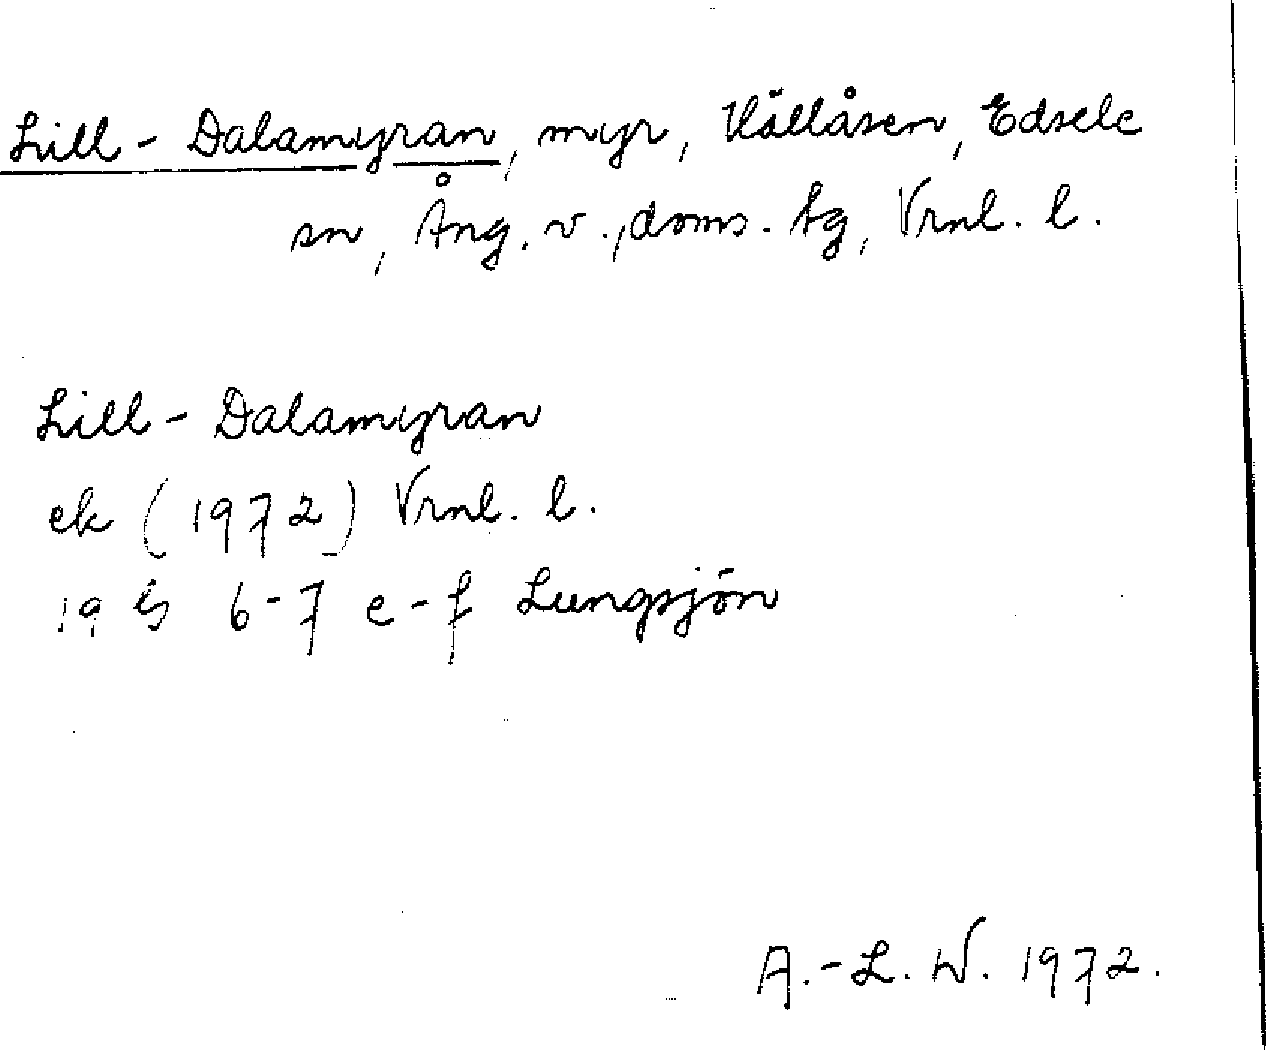 Lill-Dalamyran, myr, Hällåsen, Edsele
sn, Ång. v., doms. tg, Vrnl. l.
Lill-Dalamyran
ek (1972) Vrnl. l.
19 G 6-7 e-f Lungsjön
A.-L. W. 1972.